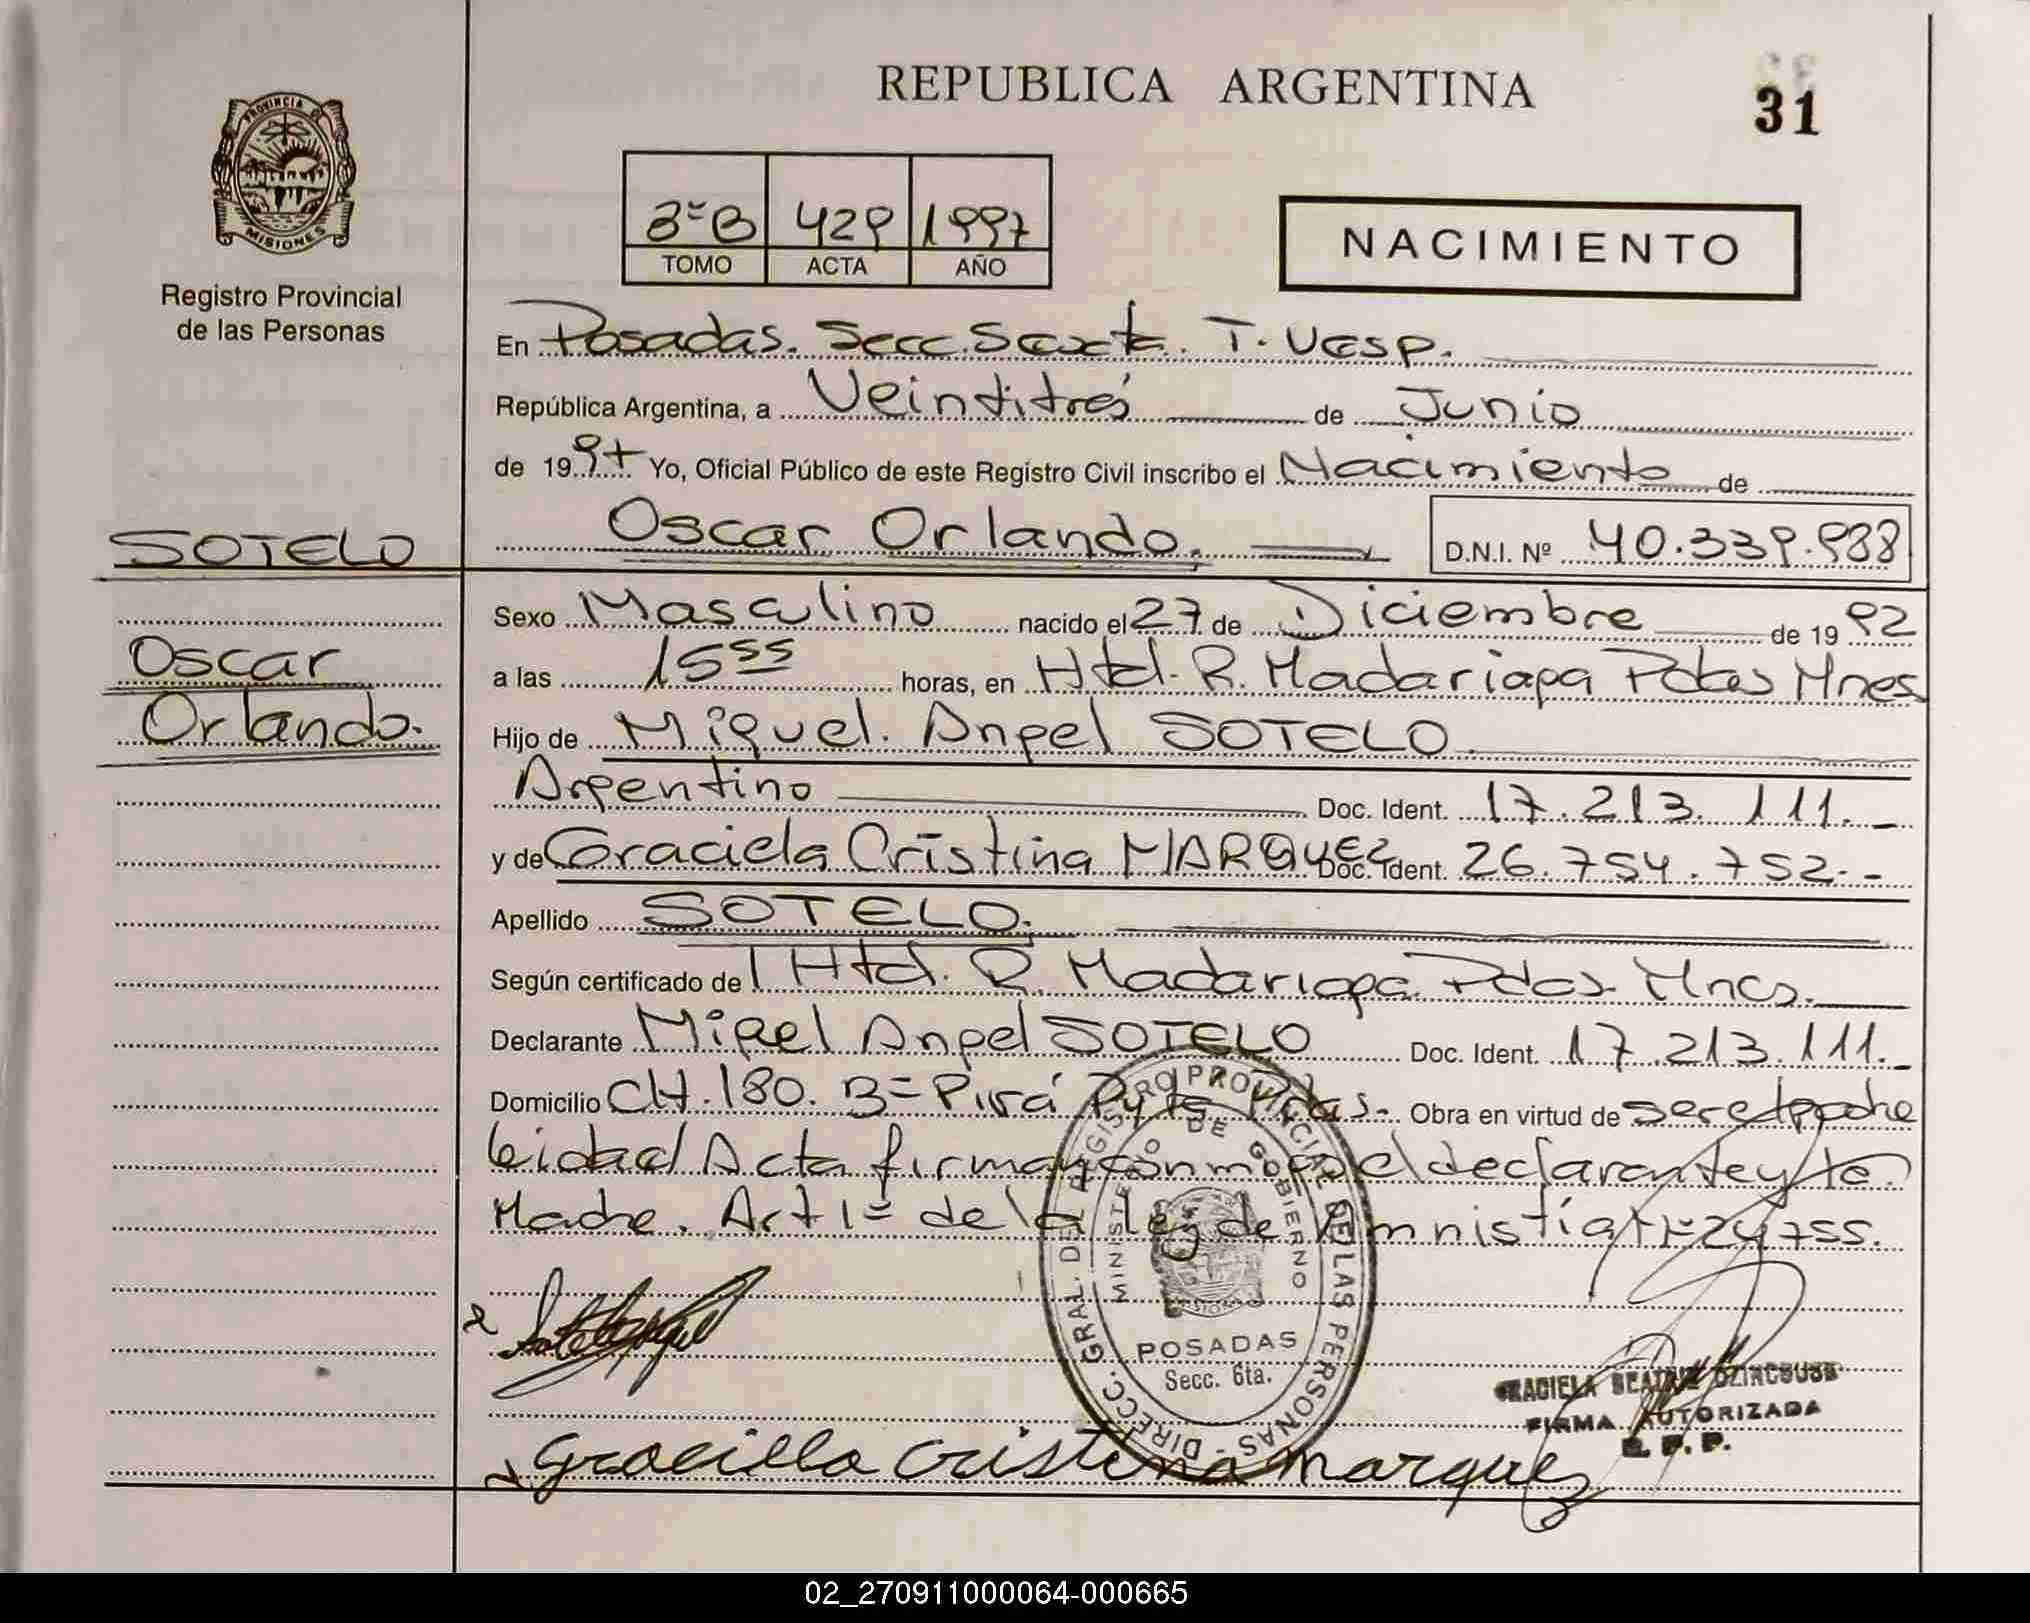 REPUBLICA ARGENTINA
31
PROVINCIA DE
MISIONES
Registro Provincial
de las Personas
3º B 429 1997
TOMO ACTA AÑO
NACIMIENTO
En Posadas. Secc. Sexta. T. Vesp.
República Argentina, a Veintitrés de Junio
de 1997 Yo, Oficial Público de este Registro Civil inscribo el Nacimiento de
SOTELO
Oscar Orlando. D.N.I. Nº 40.339.988
Sexo Masculino nacido el 27 de Diciembre de 1992
Oscar
Orlando.
a las 15 55 horas, en Htal. R. Madariaga Pdas Mnes
Hijo de Miguel Angel SOTELO.
Argentino Doc. Ident. 17.213.111.-
y de Graciela Cristina MARQUEZ Doc. Ident. 26.754.752.-
Apellido SOTELO.
Según certificado de Htal. R. Madariaga Pdas. Mnes.
Declarante Miguel Angel SOTELO Doc. Ident. 17.213.111.-
Domicilio CH. 180. Bº Pirá Pytá Pdas. Obra en virtud de ser el padre
Leidad Acta firman conmigo el declarante y la
Madre. Art 1º de la ley de Amnistía Nº 24755.
DIRECC. GRAL. DEL REGISTRO PROVINCIAL DE LAS PERSONAS
MINISTERIO DE GOBIERNO
POSADAS
Secc. 6ta.
GRACIELA BEATRIZ
FIRMA AUTORIZADA
R. P. P.
Graciella Cristina Marquez
02_270911000064-000665